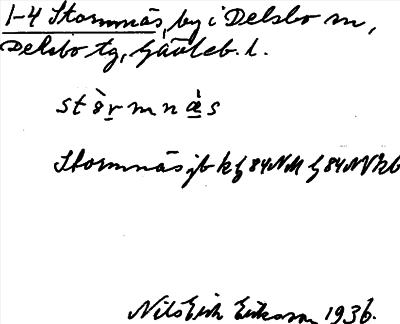 1-4 Stormnäs, by i Delsbo sn,
Delsbo tg, Gävleb. l.
stòr̠mnæ̠̀s
Stormnäs jb k f 84 NM f 84 NV kb
Nils Erik Eriksson 1936.